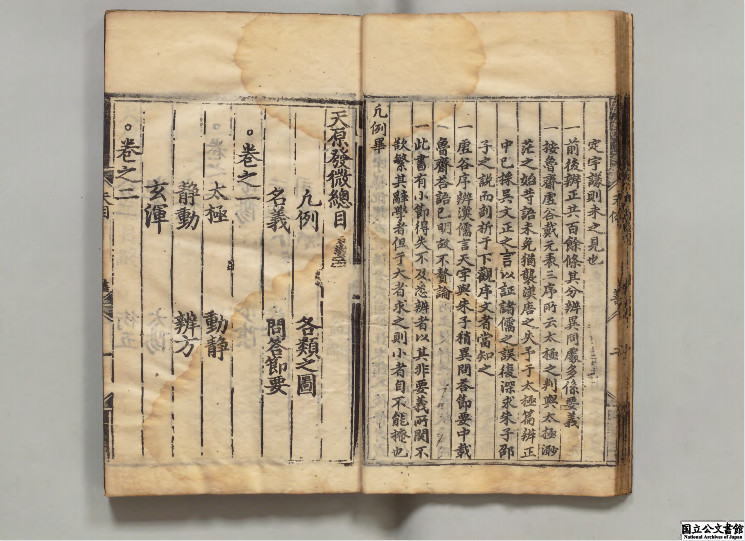 定宇謙則未之見也
一前後辨正共百餘條其分辨異同處多係要義
一按魯齋虛谷戴元表三序所云太極之判與太極渺
茫之始等語未免猶襲漢唐之失予于太極篇辨正
中已採吳文正之言以証諸儒之誤復深求朱子邵
子之說而剖析于下觀序文者當知之
一虛谷序辨漢儒言天字與朱子稍異問答節要中載
魯齋答語已明故不贅論
一此書有小節得失不及悉辨者以其非要義所關不
欲繁其辭學者但于大者求之則小者自不能掩也
凡例畢
天原發微總目
凡例 各類之圖
名義 問答節要
。卷之一
太極 動靜
靜動 辨方
玄渾
。卷之二
国立公文書館
National Archives of Japan